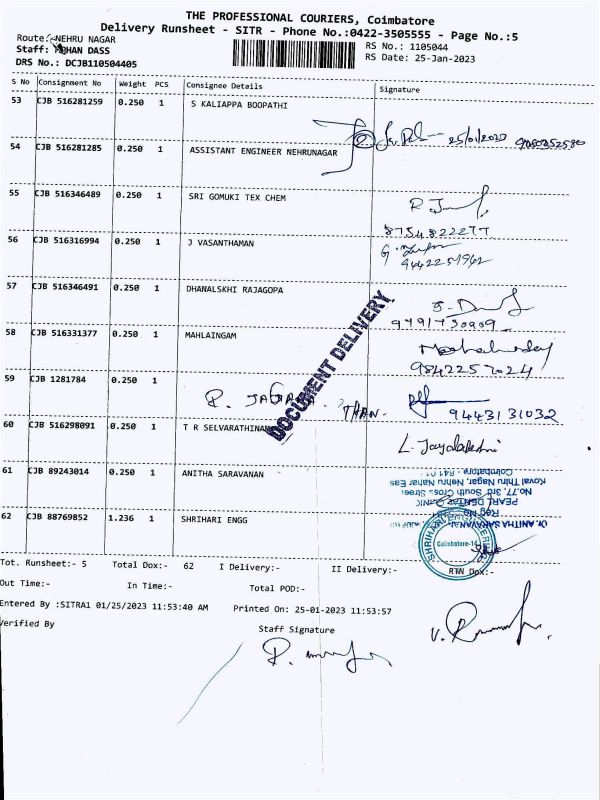 THE PROFESSIONAL COURIERS, Coimbatore
Delivery Runsheet - SITR - Phone No.:0422-3505555 - Page No.:5
Route:-NEHRU NAGAR
RS No.: 1105044
Staff: DASS
RS Date: 25-Jan-2023
DRS No.: DCJB110504405
S No Consignment No Weight PCS Consignee Details Signature
53 CJB 516281259 0.250 1 S KALIAPPA BOOPATHI
25/01/2023
54 CJB 516281285 0.250 1 ASSISTANT ENGINEER NEHRUNAGAR
55 CJB 516346489 0.250 1 SRI GOMUKI TEX CHEM
8754822277
56 CJB 516316994 0.250 1 J VASANTHAMAN
9442251962
57 CJB 516346491 0.250 1 DHANALSKHI RAJAGOPA
9791730909
58 CJB 516331377 0.250 1 MAHLAINGAM
9842257024
DOCUMENT DELIVERY
59 CJB 1281784 0.250 1
9443131032
60 CJB 516298091 0.250 1 T R SELVARATHINAM
L. Jayalakshmi
61 CJB 89243014 0.250 1 ANITHA SARAVANAN
Dr. ANITHA SARAVANAN
Reg No
PEARL DENTAL CLINIC
No.77, 3rd South Cross Street
Kovai Thiru Nagar, Nehru Nahar Eas
Coimbatore - 641 01
62 CJB 88769852 1.236 1 SHRIHARI ENGG
Coimbatore-14
Tot. Runsheet:- 5 Total Dox:- 62 I Delivery:- II Delivery:- RTN Dox:-
Out Time:- In Time:- Total POD:-
Entered By :SITRA1 01/25/2023 11:53:40 AM Printed On: 25-01-2023 11:53:57
Verified By Staff Signature